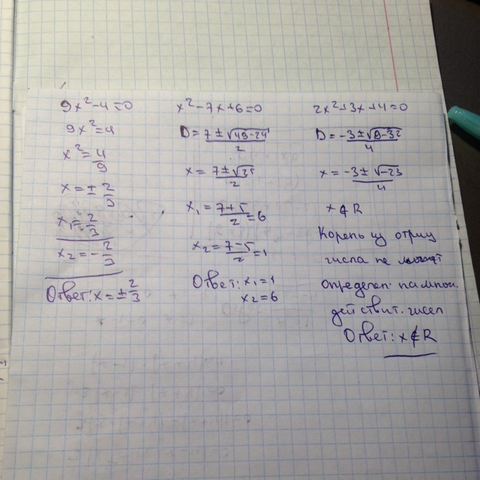 9x²-4=0
9x²=4
x²=4/9
x=±2/3
x₁=2/3
x₂=-2/3
Ответ: x=±2/3
x²-7x+6=0
D=7±√49-24/2
x=7±√25/2
x₁=7+5/2=6
x₂=7-5/2=1
Ответ: x₁=1
x₂=6
2x²+3x+4=0
D=-3±√9-32/4
x=-3±√-23/4
x∉R
Корень из отриц
числа не может
определен на множ.
действит. чисел
Ответ: x∉R